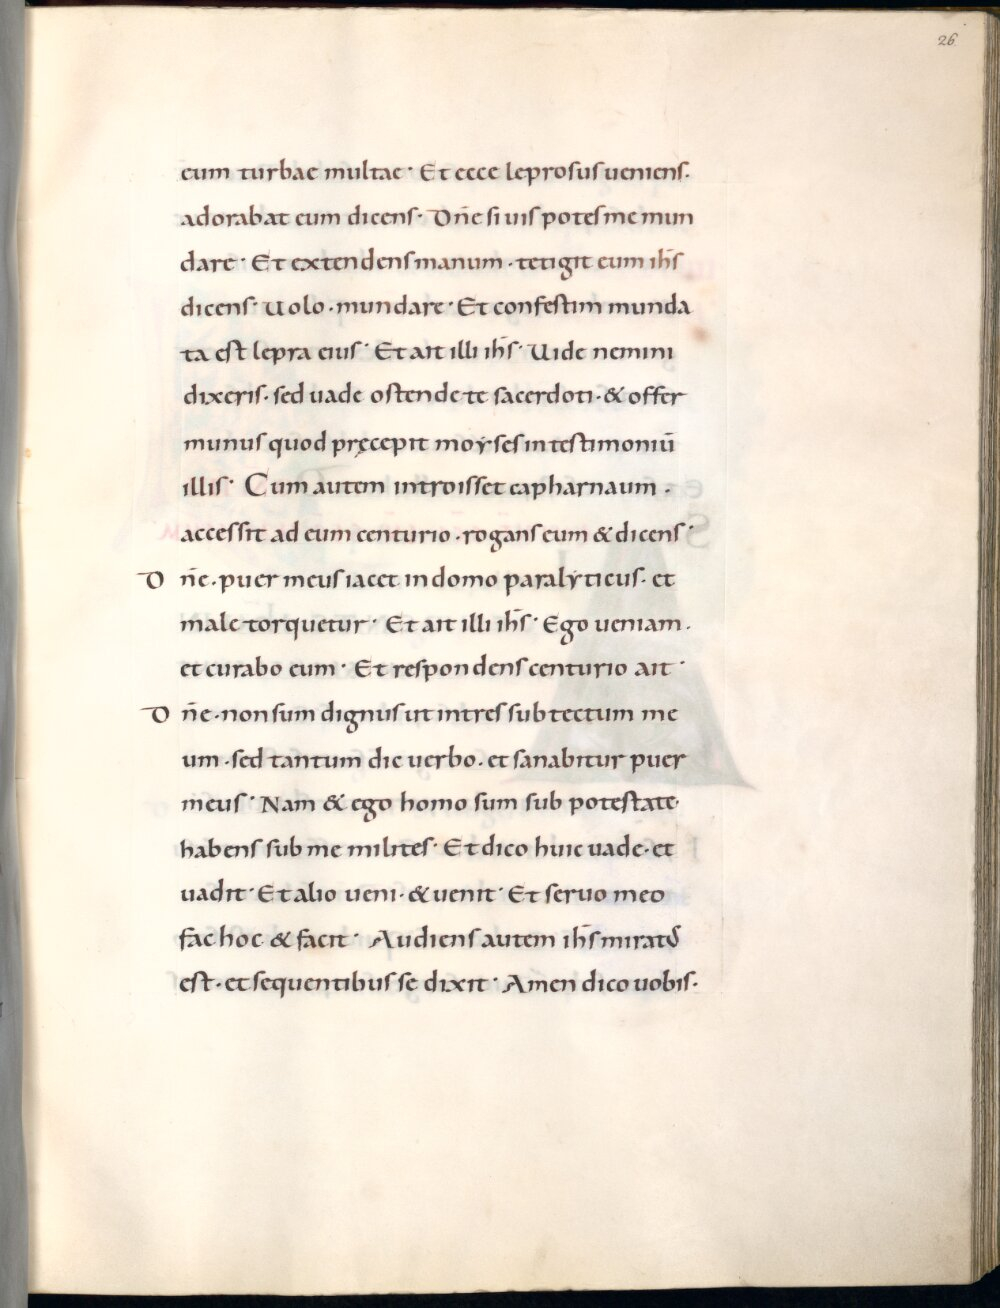 26
eum turbae multae· Et ecce leprosus ueniens.
adorabat eum dicens· Dn̄e si uis potes me mun
dare· Et extendens manum · tetigit eum ih̄s
dicens· Uolo · mundare· Et confestim munda
ta est lepra eius· Et ait illi ih̄s· Uide nemini
dixeris · sed uade ostende te sacerdoti · & offer
munus quod pręcepit moyses in testimoniū
illis· Cum autem introisset capharnaum ·
accessit ad eum centurio · rogans eum & dicens·
Dn̄e · puer meus iacet in domo paralyticus · et
male torquetur· Et ait illi ih̄s· Ego ueniam ·
et curabo eum· Et respondens centurio ait·
Dn̄e · non sum dignus ut intres sub tectum me
um · sed tantum dic uerbo · et sanabitur puer
meus· Nam & ego homo sum sub potestate·
habens sub me milites· Et dico huic uade · et
uadit· Et alio ueni · & uenit· Et seruo meo
fac hoc & facit· Audiens autem ih̄s mirat᷒
est · et sequentibus se dixit· Amen dico uobis ·